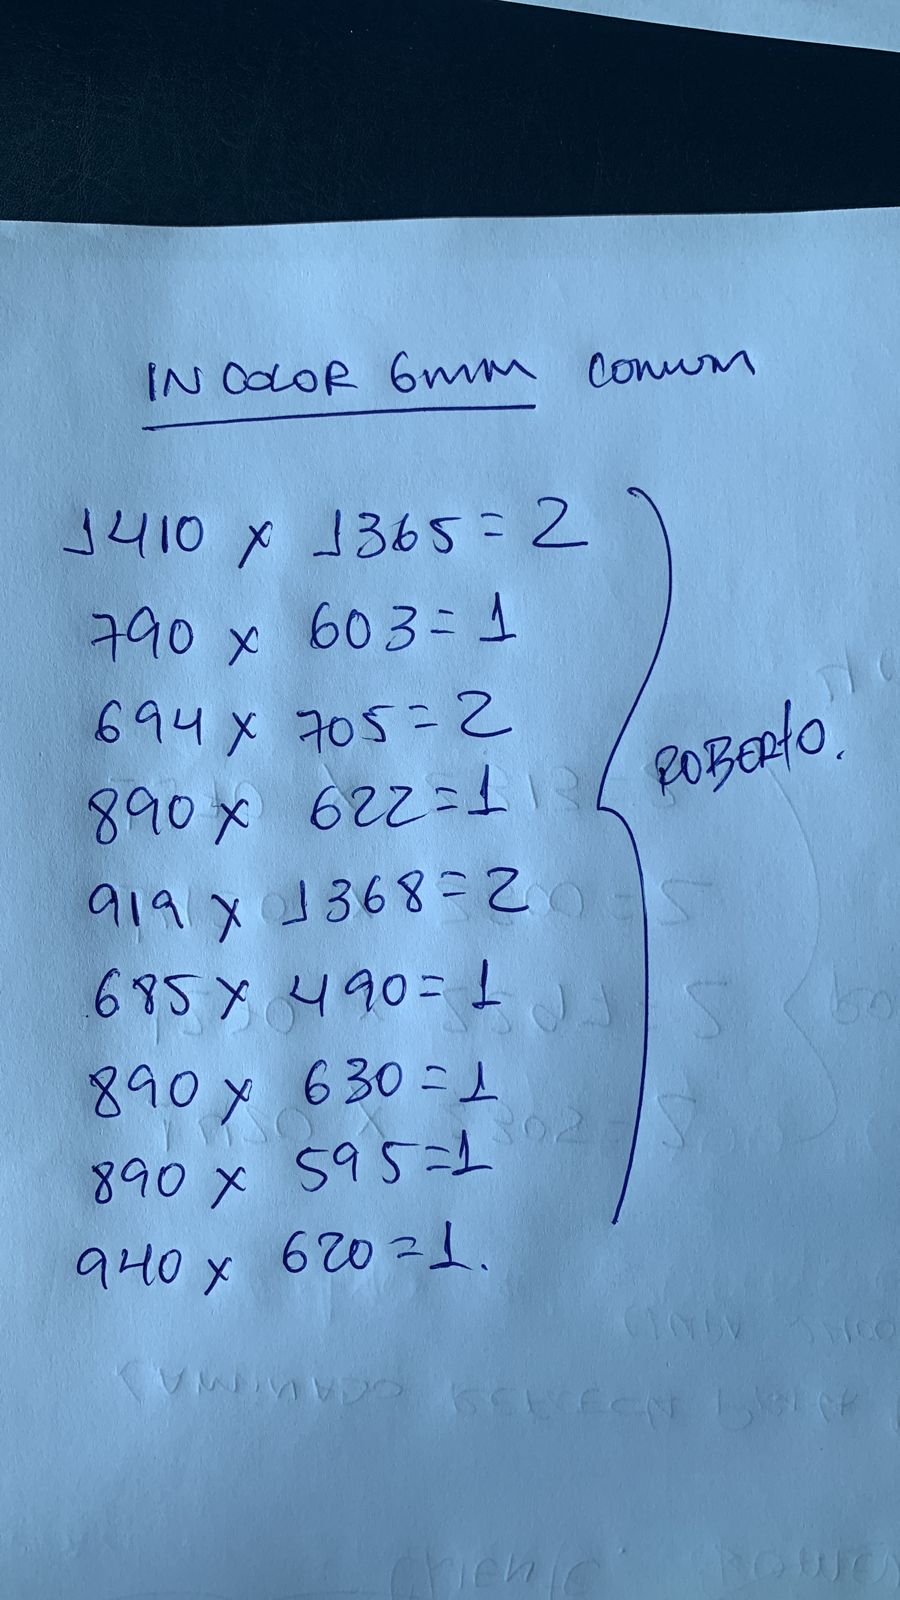 INCOLOR 6mm comum
1410 x 1365 = 2
790 x 603 = 1
694 x 705 = 2
890 x 622 = 1
919 x 1368 = 2
685 x 490 = 1
890 x 630 = 1
890 x 595 = 1
940 x 620 = 1.
ROBERTO.